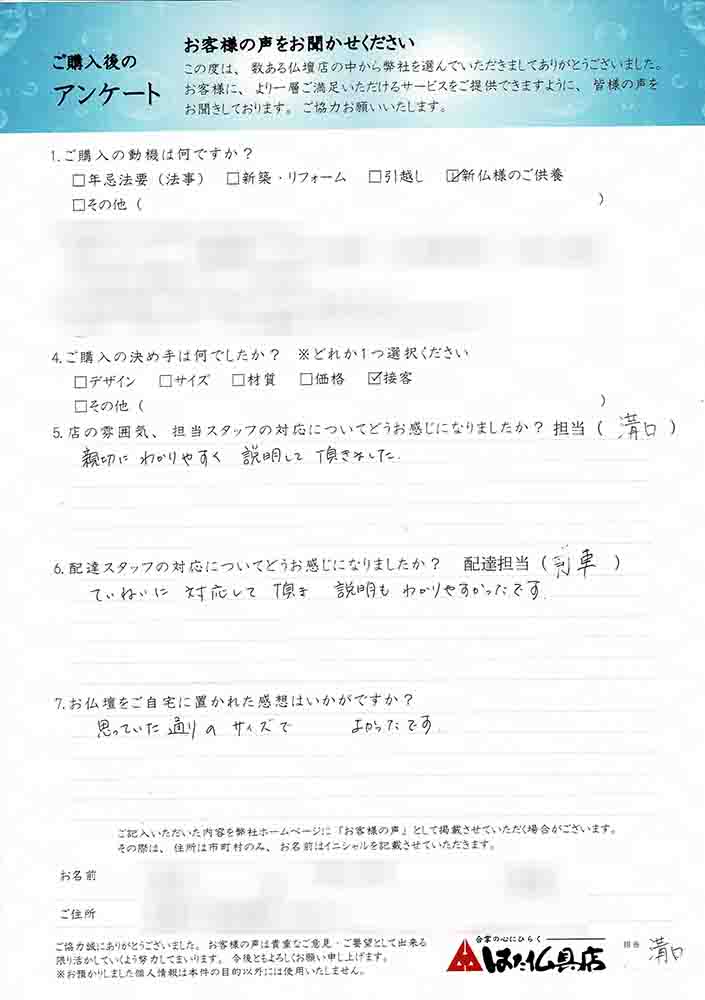 ご購入後の
アンケート
お客様の声をお聞かせください
この度は、数ある仏壇店の中から弊社を選んでいただきましてありがとうございました。
お客様に、より一層ご満足いただけるサービスをご提供できますように、皆様の声を
お聞きしております。ご協力お願いいたします。
1.ご購入の動機は何ですか？
□年忌法要（法事） □新築・リフォーム □引越し ☑新仏様のご供養
□その他（ ）
4.ご購入の決め手は何でしたか？ ※どれか1つ選択ください
□デザイン □サイズ □材質 □価格 ☑接客
□その他（ ）
5.店の雰囲気、担当スタッフの対応についてどうお感じになりましたか？担当（ 溝口 ）
親切に わかりやすく 説明して 頂きました.
6.配達スタッフの対応についてどうお感じになりましたか？ 配達担当（ 車 ）
ていねいに 対応して 頂き 説明も わかりやすかったです.
7.お仏壇をご自宅に置かれた感想はいかがですか？
思っていた通りの サイズで よかったです.
ご記入いただいた内容を弊社ホームページに「お客様の声」として掲載させていただく場合がございます。
その際は、住所は市町村のみ、お名前はイニシャルを記載させていただきます。
お名前
ご住所
ご協力誠にありがとうございました。お客様の声は貴重なご意見・ご要望として出来る
限り活かしていくよう努力してまいります。今後ともよろしくお願い申し上げます。
※お預かりしました個人情報は本件の目的以外には使用いたしません。
合掌の心にひらく
はた仏具店
担当 溝口